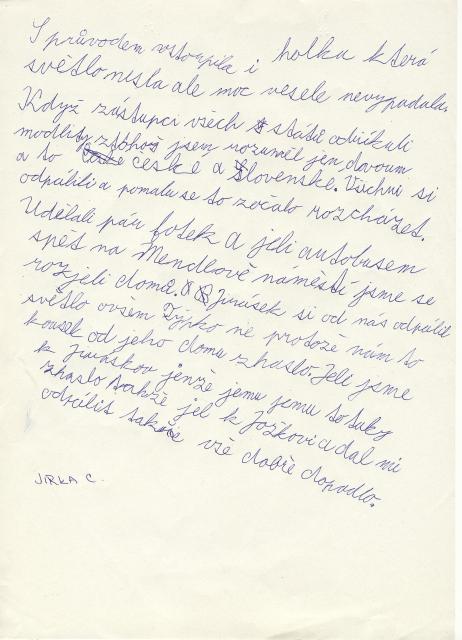 S průvodem vstoupila i holka která
světlo nesla ale moc vesele nevypadala.
Když zástupci všech států odříkali
modlitby z toho jsem rozuměl jen dvoum
a to české a Slovenské. Všichni si
odpálili a pomalu se to začalo rozcházet.
Udělali páru fotek a jeli autobusem
spět na Mendlově náměstí jsme se
rozjeli domů. Jurásek si od nás odpálil
světlo ovšem Týpko ne protože nám to
kousek od jeho domu zhaslo. Jeli jsme
k Juráskou jenže jemu jemu to taky
zhaslo takže jel k Jožkovi a dal mi
odpálit takže vše dobře dopadlo.
JIRKA C.